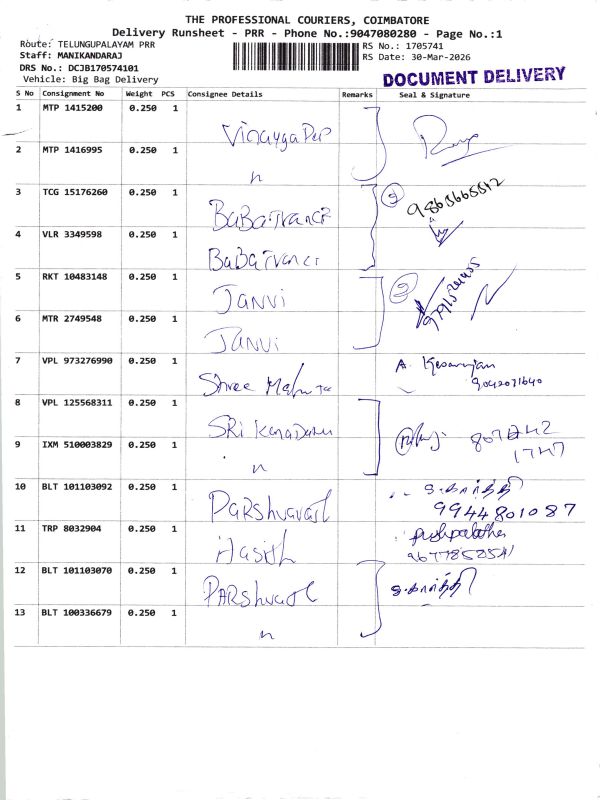 THE PROFESSIONAL COURIERS, COIMBATORE
Delivery Runsheet - PRR - Phone No.:9047080280 - Page No.:1
Route: TELUNGUPALAYAM PRR
Staff: MANIKANDARAJ
DRS No.: DCJB170574101
Vehicle: Big Bag Delivery
RS No.: 1705741
RS Date: 30-Mar-2026
DOCUMENT DELIVERY
S No Consignment No Weight PCS Consignee Details Remarks Seal & Signature
1 MTP 1415200 0.250 1
2 MTP 1416995 0.250 1 n
3 TCG 15176260 0.250 1 BaBaTrancr 2 9865665512
4 VLR 3349598 0.250 1 BaBaTrancr
5 RKT 10483148 0.250 1 JANVI 2
6 MTR 2749548 0.250 1 JANVI
7 VPL 973276990 0.250 1 Shree A. Kesavrajan 9042071640
8 VPL 125568311 0.250 1 SRi
9 IXM 510003829 0.250 1 n
10 BLT 101103092 0.250 1 PARShvavatl 9944801087
11 TRP 8032904 0.250 1 Hasith
12 BLT 101103070 0.250 1 PARShvatl
13 BLT 100336679 0.250 1 n